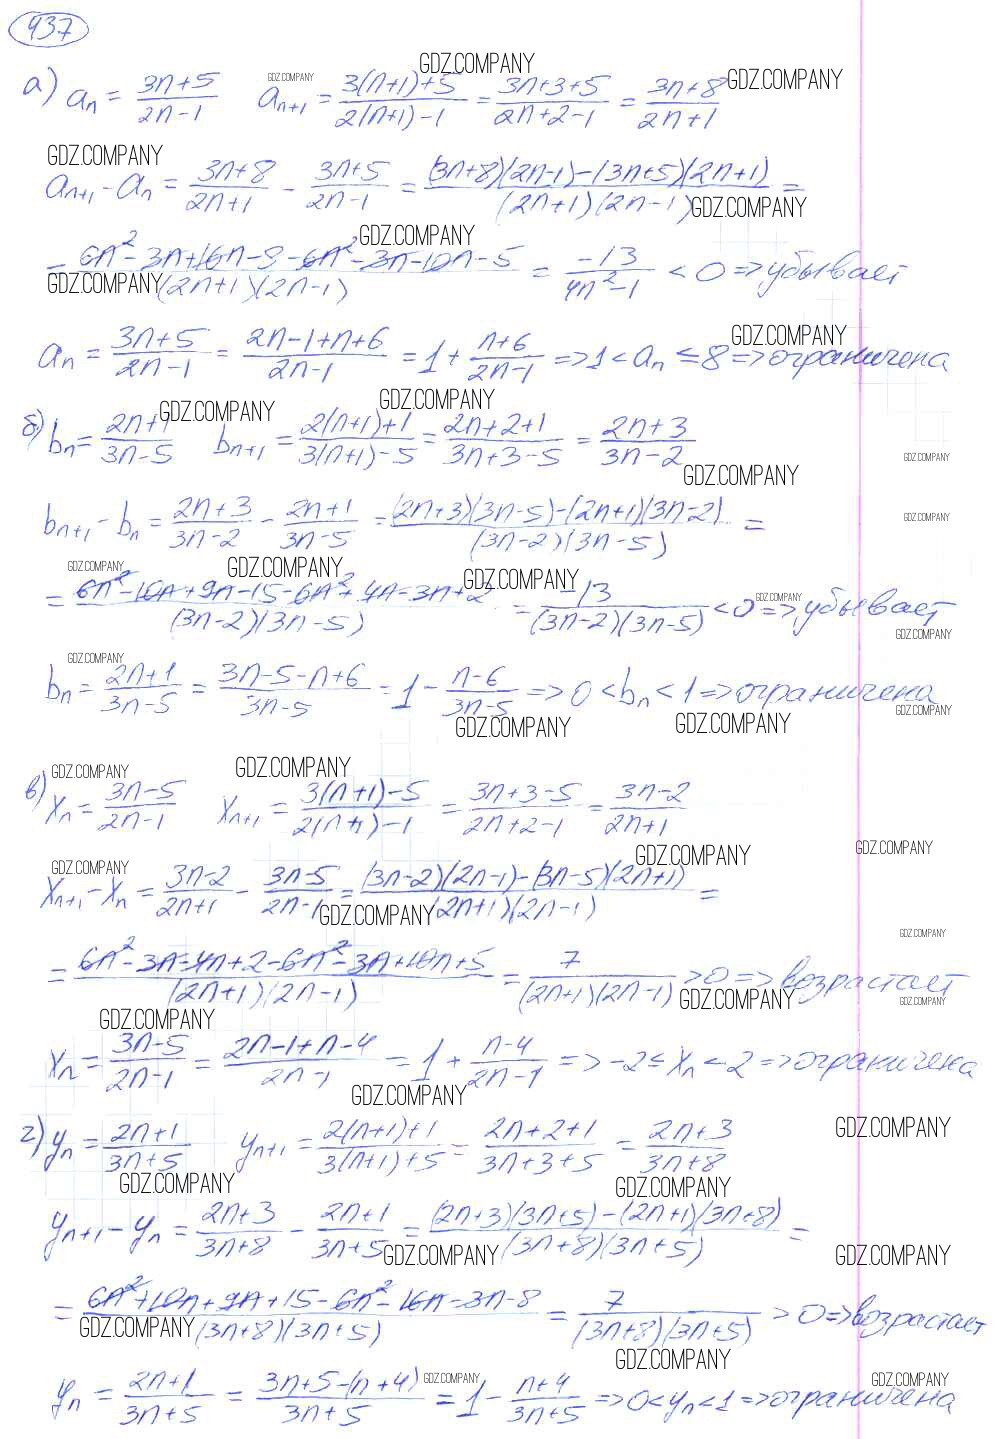 437
GDZ.COMPANY
а) aₙ = (3n+5)/(2n-1) GDZ.COMPANY aₙ₊₁ = (3(n+1)+5)/(2(n+1)-1) = (3n+3+5)/(2n+2-1) = (3n+8)/(2n+1) GDZ.COMPANY
GDZ.COMPANY
aₙ₊₁ - aₙ = (3n+8)/(2n+1) - (3n+5)/(2n-1) = ((3n+8)(2n-1)-(3n+5)(2n+1))/((2n+1)(2n-1)) =
GDZ.COMPANY
GDZ.COMPANY
= (6n²-3n+16n-8-6n²-3n-10n-5)/((2n+1)(2n-1)) = -13/(4n²-1) < 0 => убывает
GDZ.COMPANY
GDZ.COMPANY
aₙ = (3n+5)/(2n-1) = (2n-1+n+6)/(2n-1) = 1 + (n+6)/(2n-1) => 1 < aₙ ≤ 8 => ограничена
GDZ.COMPANY GDZ.COMPANY
б) bₙ = (2n+1)/(3n-5) bₙ₊₁ = (2(n+1)+1)/(3(n+1)-5) = (2n+2+1)/(3n+3-5) = (2n+3)/(3n-2)
GDZ.COMPANY
GDZ.COMPANY
GDZ.COMPANY
bₙ₊₁ - bₙ = (2n+3)/(3n-2) - (2n+1)/(3n-5) = ((2n+3)(3n-5)-(2n+1)(3n-2))/((3n-2)(3n-5)) =
GDZ.COMPANY GDZ.COMPANY GDZ.COMPANY
= (6n²-10n+9n-15-6n²+4n-3n+2)/((3n-2)(3n-5)) = -13/((3n-2)(3n-5)) < 0 => убывает
GDZ.COMPANY
GDZ.COMPANY
GDZ.COMPANY
bₙ = (2n+1)/(3n-5) = (3n-5-n+6)/(3n-5) = 1 - (n-6)/(3n-5) => 0 < bₙ < 1 => ограничена
GDZ.COMPANY GDZ.COMPANY GDZ.COMPANY
GDZ.COMPANY GDZ.COMPANY
в) xₙ = (3n-5)/(2n-1) xₙ₊₁ = (3(n+1)-5)/(2(n+1)-1) = (3n+3-5)/(2n+2-1) = (3n-2)/(2n+1)
GDZ.COMPANY GDZ.COMPANY GDZ.COMPANY
xₙ₊₁ - xₙ = (3n-2)/(2n+1) - (3n-5)/(2n-1) = ((3n-2)(2n-1)-(3n-5)(2n+1))/((2n+1)(2n-1)) =
GDZ.COMPANY
GDZ.COMPANY
= (6n²-3n-4n+2-6n²-3n+10n+5)/((2n+1)(2n-1)) = 7/((2n+1)(2n-1)) > 0 => возрастает
GDZ.COMPANY GDZ.COMPANY
GDZ.COMPANY
xₙ = (3n-5)/(2n-1) = (2n-1+n-4)/(2n-1) = 1 + (n-4)/(2n-1) => -2 ≤ xₙ < 2 => ограничена
GDZ.COMPANY
г) yₙ = (2n+1)/(3n+5) yₙ₊₁ = (2(n+1)+1)/(3(n+1)+5) = (2n+2+1)/(3n+3+5) = (2n+3)/(3n+8) GDZ.COMPANY
GDZ.COMPANY GDZ.COMPANY
yₙ₊₁ - yₙ = (2n+3)/(3n+8) - (2n+1)/(3n+5) = ((2n+3)(3n+5)-(2n+1)(3n+8))/((3n+8)(3n+5)) =
GDZ.COMPANY GDZ.COMPANY
= (6n²+10n+9n+15-6n²-16n-3n-8)/((3n+8)(3n+5)) = 7/((3n+8)(3n+5)) > 0 => возрастает
GDZ.COMPANY
GDZ.COMPANY
GDZ.COMPANY GDZ.COMPANY
yₙ = (2n+1)/(3n+5) = (3n+5-(n+4))/(3n+5) = 1 - (n+4)/(3n+5) => 0 < yₙ < 1 => ограничена